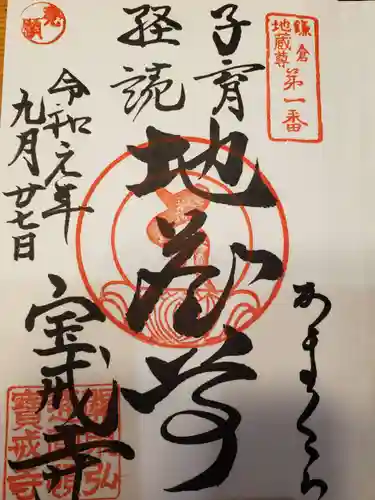 鎌倉
地蔵尊
第一番
子育
経読
地蔵尊
令和元年
九月廿七日
宝戒寺
寶戒寺